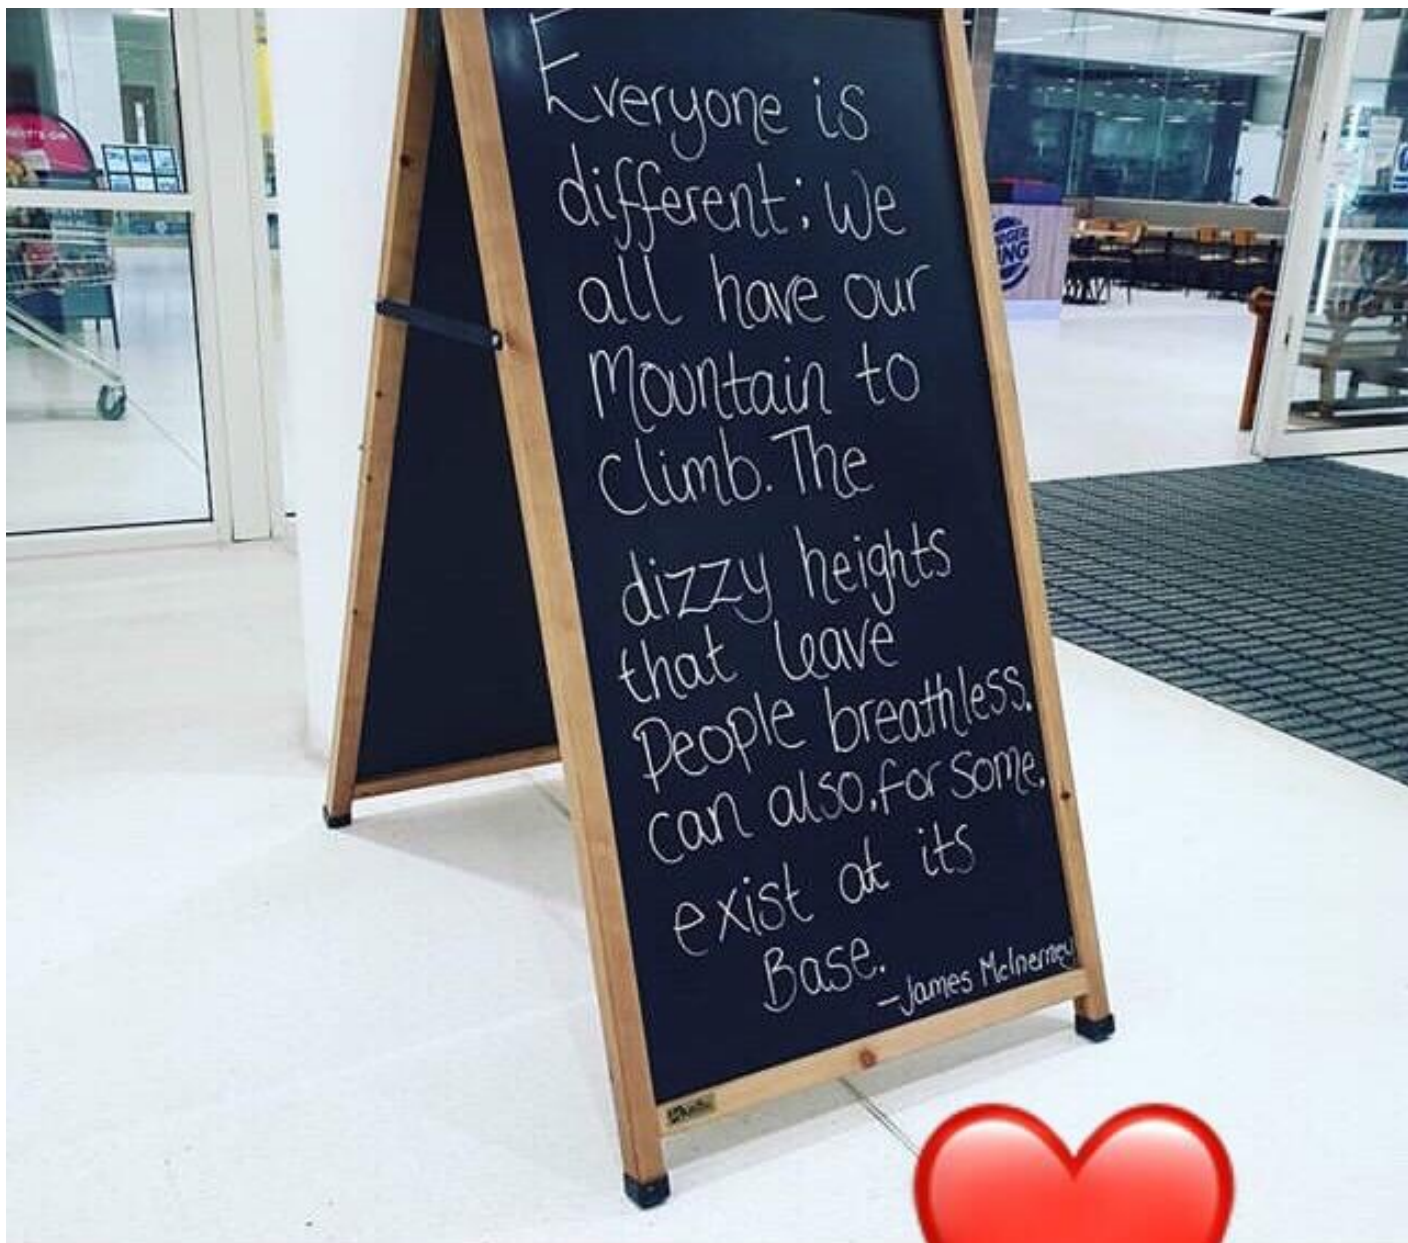 Everyone is
different; We
all have our
Mountain to
Climb. The
dizzy heights
that leave
People breathless.
can also, for some,
exist at its
Base.
-James McInerney
BURGER
KING